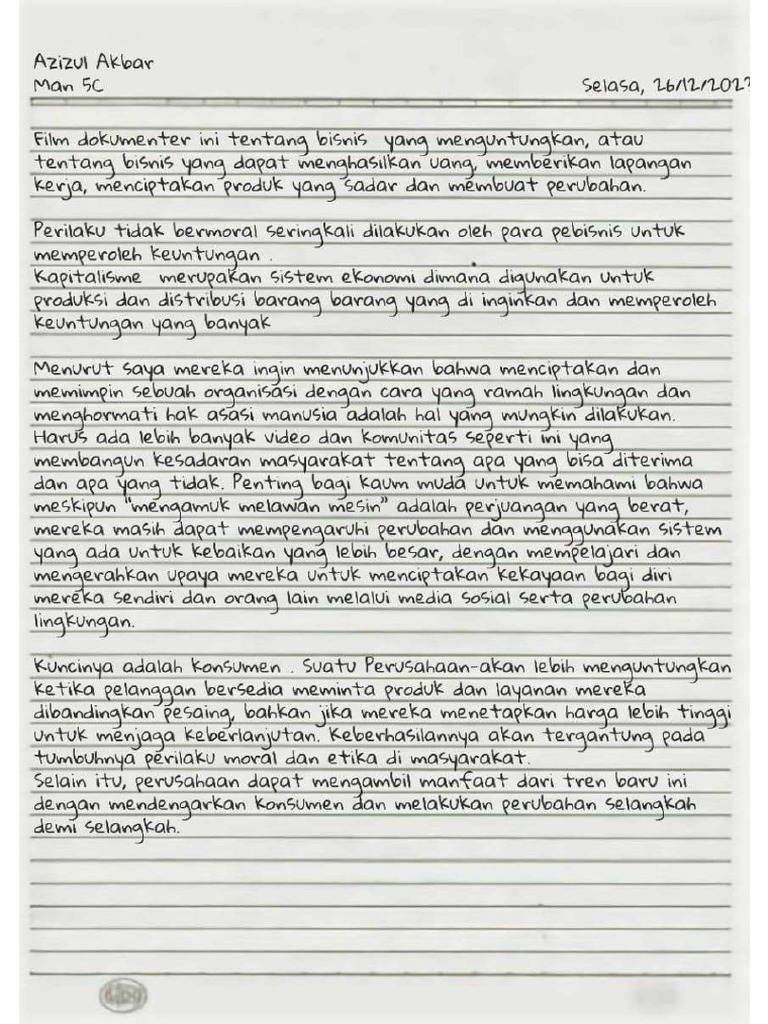 Azizul Akbar
Man 5C
Selasa, 26/12/2023
Film dokumenter ini tentang bisnis yang menguntungkan, atau
tentang bisnis yang dapat menghasilkan uang, memberikan lapangan
kerja, menciptakan produk yang sadar dan membuat perubahan.
Perilaku tidak bermoral seringkali dilakukan oleh para pebisnis untuk
memperoleh keuntungan .
Kapitalisme merupakan sistem ekonomi dimana digunakan untuk
produksi dan distribusi barang barang yang di inginkan dan memperoleh
keuntungan yang banyak
Menurut saya mereka ingin menunjukkan bahwa menciptakan dan
memimpin sebuah organisasi dengan cara yang ramah lingkungan dan
menghormati hak asasi manusia adalah hal yang mungkin dilakukan.
Harus ada lebih banyak video dan komunitas seperti ini yang
membangun kesadaran masyarakat tentang apa yang bisa diterima
dan apa yang tidak. Penting bagi kaum muda untuk memahami bahwa
meskipun "mengamuk melawan mesin" adalah perjuangan yang berat,
mereka masih dapat mempengaruhi perubahan dan menggunakan sistem
yang ada untuk kebaikan yang lebih besar, dengan mempelajari dan
mengerahkan upaya mereka untuk menciptakan kekayaan bagi diri
mereka sendiri dan orang lain melalui media sosial serta perubahan
lingkungan.
Kuncinya adalah konsumen . Suatu Perusahaan-akan lebih menguntungkan
ketika pelanggan bersedia meminta produk dan layanan mereka
dibandingkan pesaing, bahkan jika mereka menetapkan harga lebih tinggi
untuk menjaga keberlanjutan. Keberhasilannya akan tergantung pada
tumbuhnya perilaku moral dan etika di masyarakat.
Selain itu, perusahaan dapat mengambil manfaat dari tren baru ini
dengan mendengarkan konsumen dan melakukan perubahan selangkah
demi selangkah.